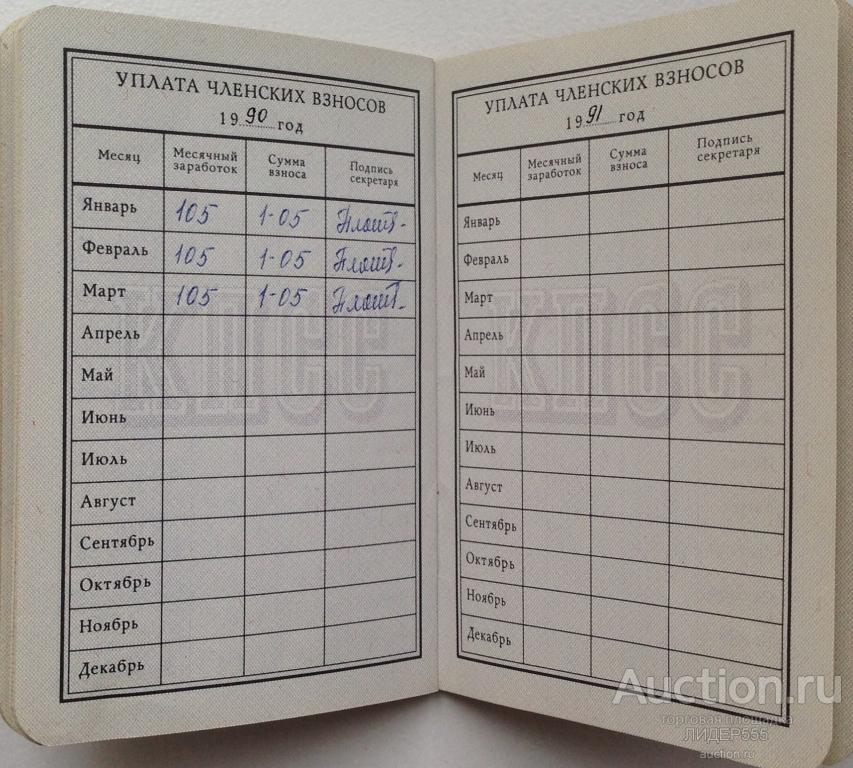 УПЛАТА ЧЛЕНСКИХ ВЗНОСОВ
1990 год
Месяц Месячный заработок Сумма взноса Подпись секретаря
Январь 105 1-05
Февраль 105 1-05
Март 105 1-05
Апрель
Май
Июнь
Июль
Август
Сентябрь
Октябрь
Ноябрь
Декабрь
КПСС
УПЛАТА ЧЛЕНСКИХ ВЗНОСОВ
1991 год
Месяц Месячный заработок Сумма взноса Подпись секретаря
Январь
Февраль
Март
Апрель
Май
Июнь
Июль
Август
Сентябрь
Октябрь
Ноябрь
Декабрь
КПСС
Auction.ru
торговая площадка
ЛИДЕР555
auction.ru